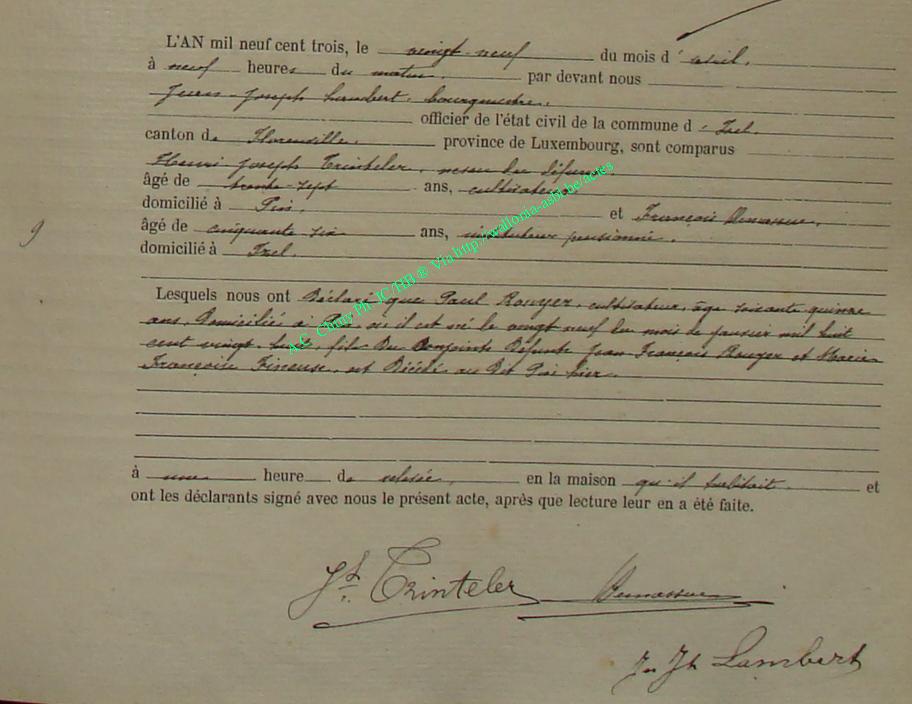 L'AN mil neuf cent trois, le vingt-neuf du mois d' avril.
à neuf heures du matin. par devant nous
Jean-Joseph Lambert, bourgmestre,
officier de l'état civil de la commune d' Izel.
canton de Florenville. province de Luxembourg, sont comparus
Henri Joseph Trinteler, neveu du défunt
âgé de trente-sept ans, cultivateur
domicilié à Pin. et François
âgé de cinquante six ans, instituteur pensionné.
domicilié à Izel.
9
Lesquels nous ont Déclaré que Paul Rouyer, cultivateur, âgé soixante quinze
ans, Domicilié à Pin, où il est né le vingt neuf du mois de janvier mil huit
cent vingt fils Des Conjoints Défunts Jean François Rouyer et Marie
Françoise est Décédé au Dit Pin hier.
à une heure de relevée, en la maison qu'il habitait. et
ont les déclarants signé avec nous le présent acte, après que lecture leur en a été faite.
Jh Trinteler
Jn Jh Lambert
A.C. Chiny Ph JC/HB ® Via http://wallonia-asbl.be/actes